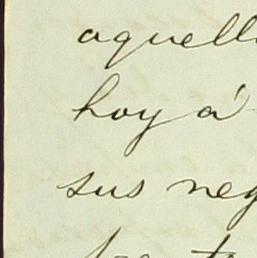 aquell
hoy á
sus neg